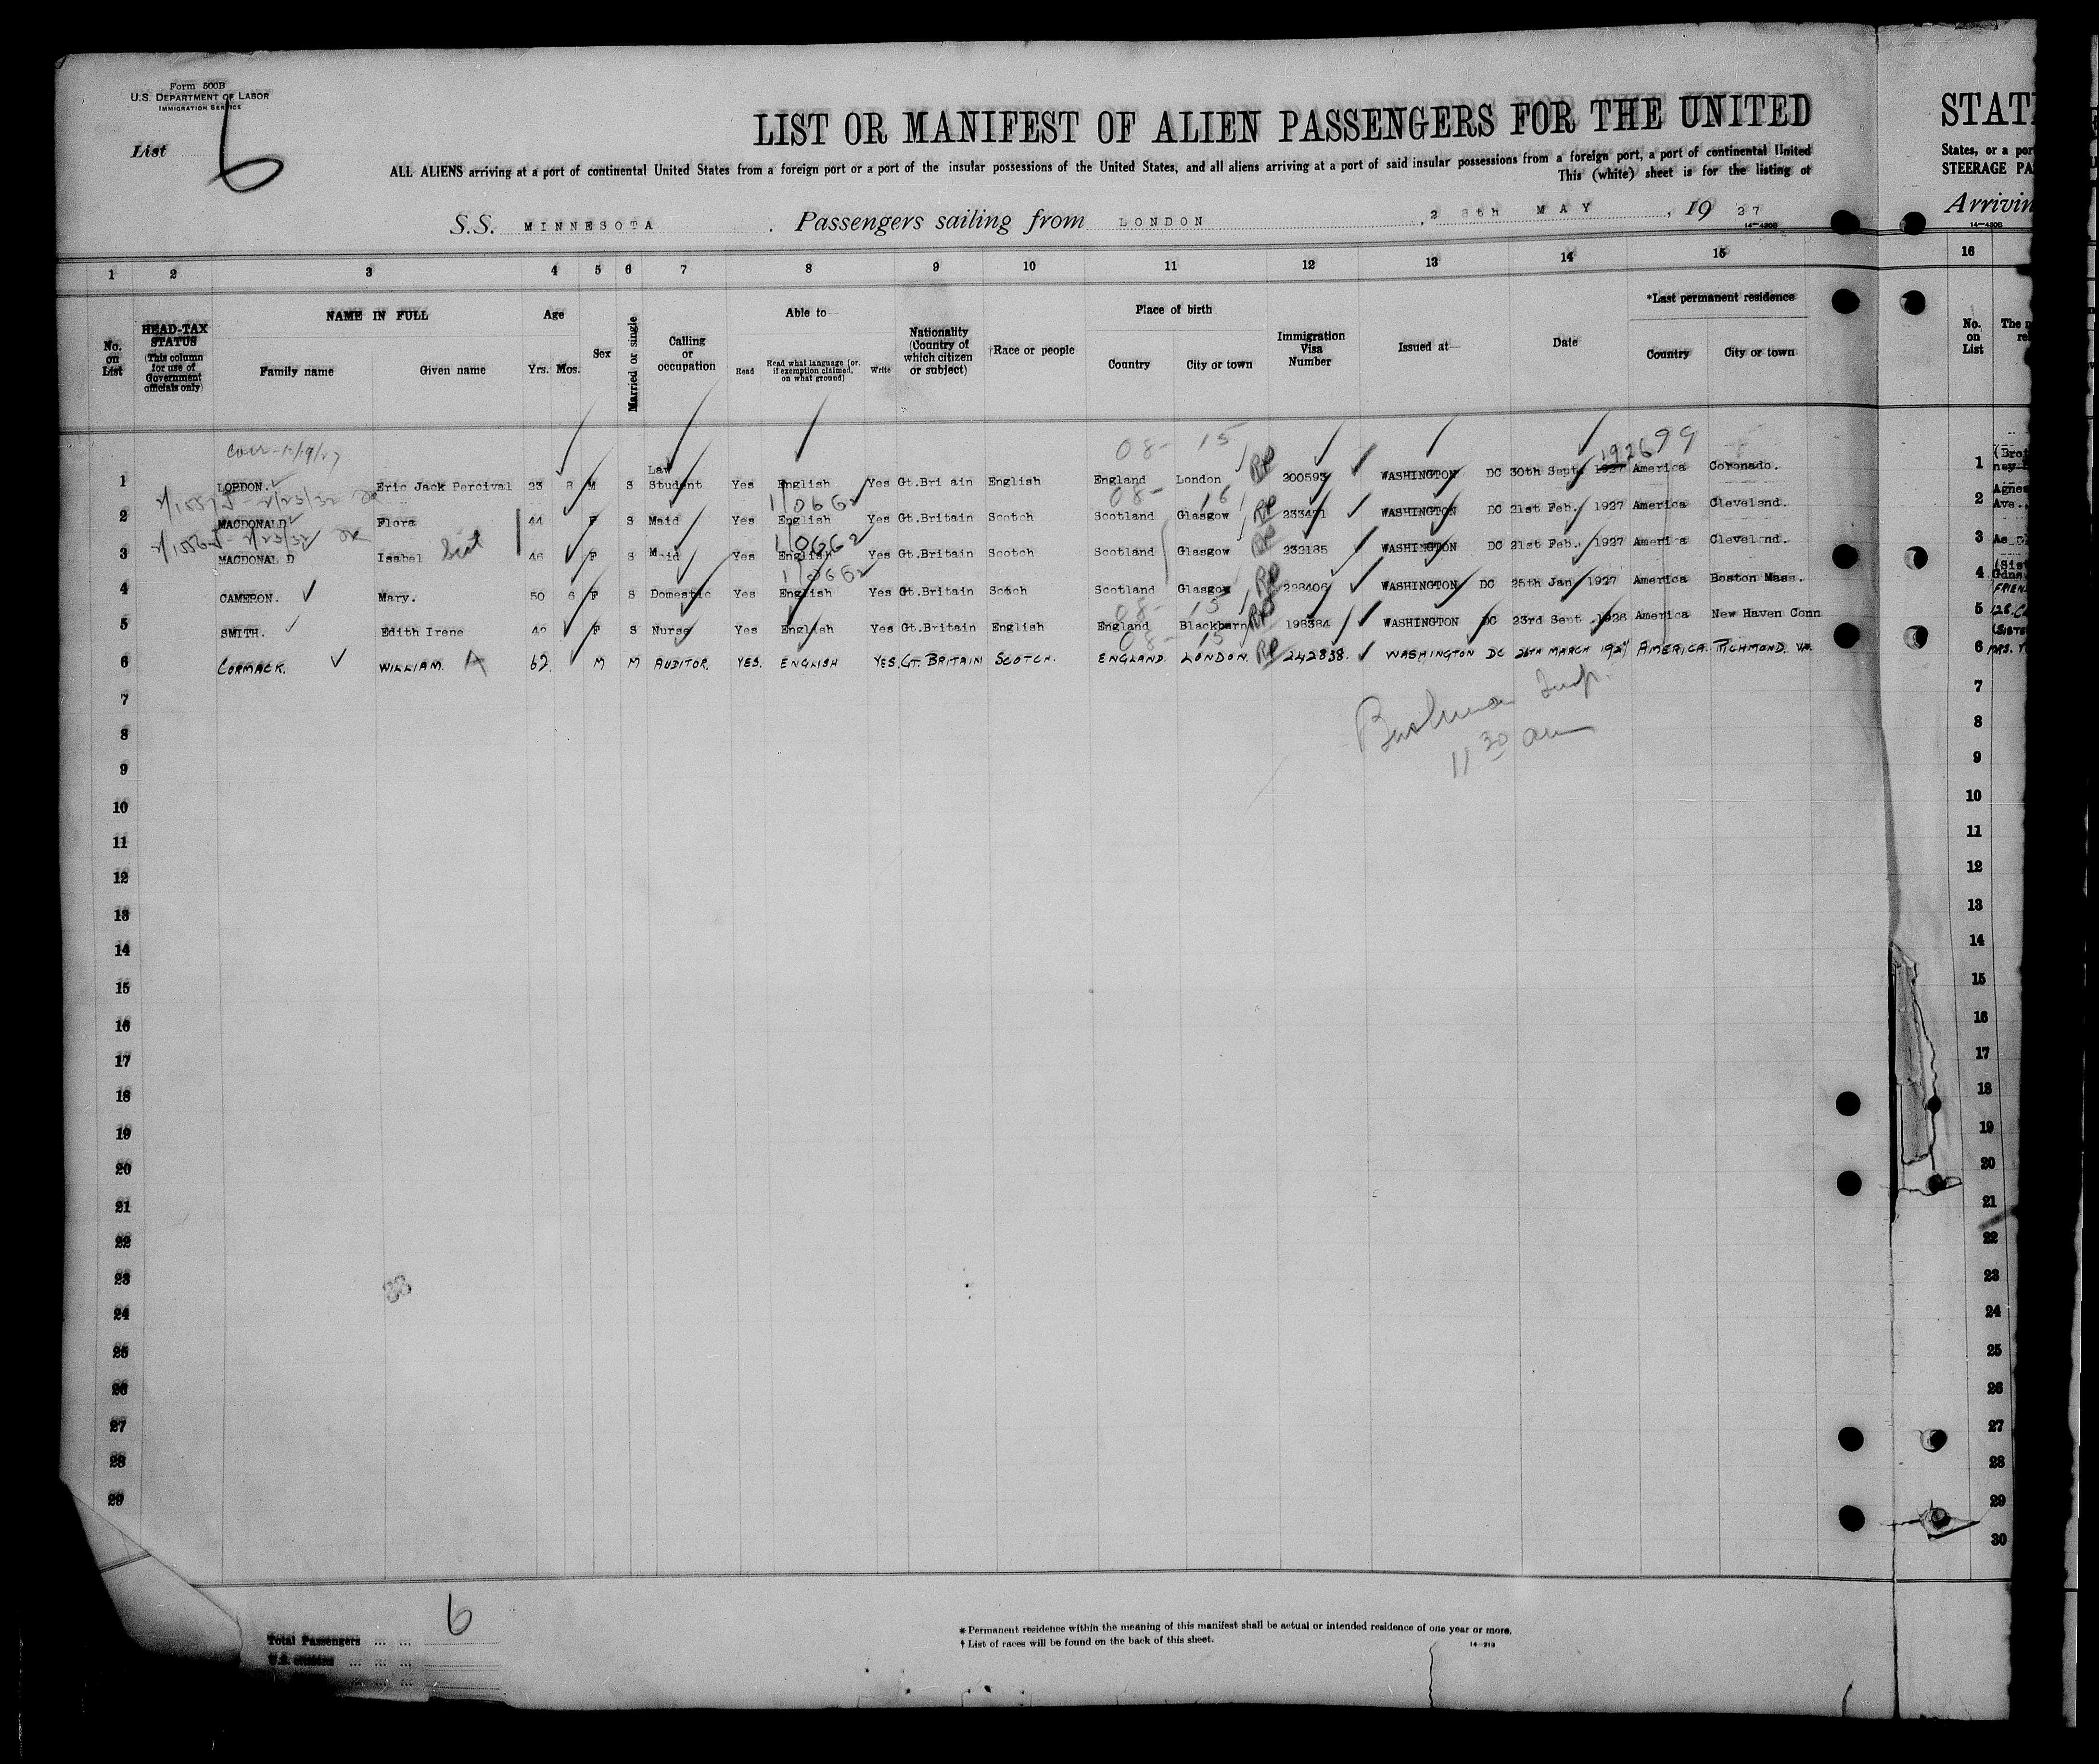 Form 500B
U.S. DEPARTMENT OF LABOR
IMMIGRATION SERVICE
List 6
LIST OR MANIFEST OF ALIEN PASSENGERS FOR THE UNITED
ALL ALIENS arriving at a port of continental United States from a foreign port or a port of the insular possessions of the United States, and all aliens arriving at a port of said insular possessions from a foreign port, a port of continental United
This (white) sheet is for the listing of
S.S. MINNESOTA Passengers sailing from LONDON , 28th MAY , 19 27
14—430B
STAT
States, or a por
STEERAGE PA
Arrivin
14—430B
1 2 3 4 5 6 7 8 9 10 11 12 13 14 15 16
No. on List
HEAD-TAX STATUS (This column for use of Government officials only)
NAME IN FULL
Family name Given name
Age
Yrs. Mos.
Sex
Married or single
Calling or occupation
Able to
Read Read what language (or, if exemption claimed, on what ground) Write
Nationality (Country of which citizen or subject)
†Race or people
Place of birth
Country City or town
Immigration Visa Number
Issued at
Date
*Last permanent residence
Country City or town
No. on List
The
08- 15 1926 99
1 LORDON. Eric Jack Percival 23 8 M S Law Student Yes English Yes Gt.Bri ain English England London RP 200593 WASHINGTON DC 30th Sept 1927 America Coronado. 1
2/23/32 1/0662 08- 16
2 MACDONALD Flora 44 F S Maid Yes English Yes Gt.Britain Scotch Scotland Glasgow RP 233471 WASHINGTON DC 21st Feb. 1927 America Cleveland. 2 Agnes Ave.,
2/23/32 1/0662
3 MACDONAL D Isabel 46 F S Maid Yes English Yes Gt.Britain Scotch Scotland Glasgow RP 232185 WASHINGTON DC 21st Feb. 1927 America Cleveland. 3
1/0662
4 CAMERON. Mary. 50 6 F S Domestic Yes English Yes Gt.Britain Scotch Scotland Glasgow RP 228406 WASHINGTON DC 25th Jan 1927 America Boston Mass. 4
08- 15
5 SMITH. Edith Irene F S Nurse Yes English Yes Gt.Britain English England Blackburn RP 198384 WASHINGTON DC 23rd Sept. 1926 America New Haven Conn 5
08- 15
6 CORMACK. WILLIAM. A 62. M M AUDITOR. YES. ENGLISH YES. GT. BRITAIN SCOTCH. ENGLAND. LONDON. RP 242838. WASHINGTON DC 26TH MARCH 1927 AMERICA. RICHMOND. VA. 6 MRS.
Bushman Insp.
11 30 am
7 7
8 8
9 9
10 10
11 11
12 12
13 13
14 14
15 15
16 16
17 17
18 18
19 19
20 20
21 21
22 22
23 23
24 24
25 25
26 26
27 27
28 28
29 29
30
Total Passengers ... ... 6
U.S. citizens ... ... ...
*Permanent residence within the meaning of this manifest shall be actual or intended residence of one year or more.
†List of races will be found on the back of this sheet.
14—213